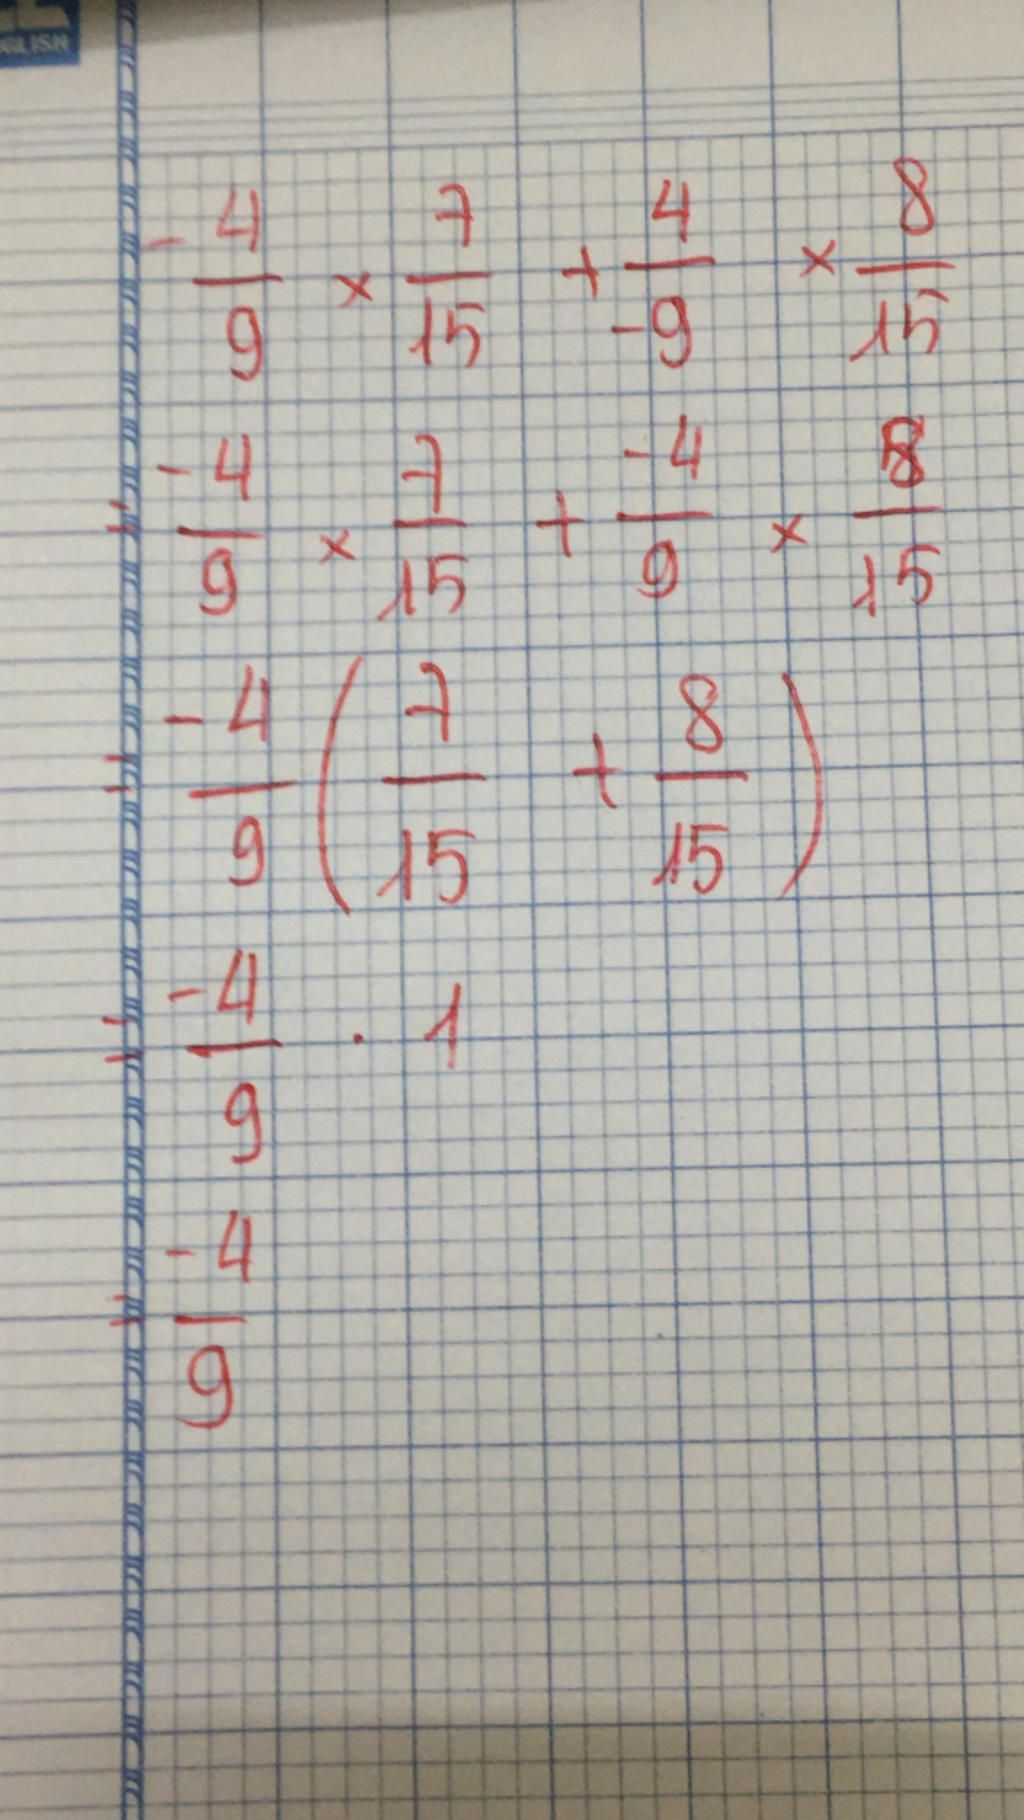 GLISH
-4/9 × 7/15 + 4/-9 × 8/15
= -4/9 × 7/15 + -4/9 × 8/15
= -4/9 (7/15 + 8/15)
= -4/9 . 1
= -4/9